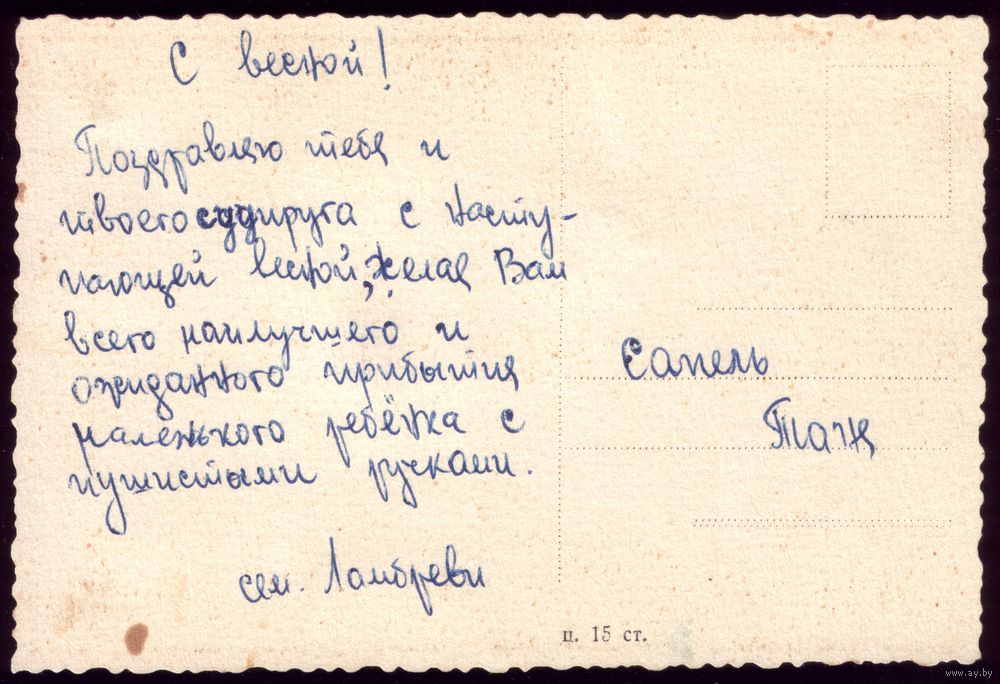 С весной!
Поздравляю тебя и
твоего супруга с насту-
пающей весной, желая Вам
всего наилучшего и
ожиданного прибытия
маленького ребёнка с
пушистыми ручками.
сем. Ламбреви
Сапель
Таня
ц. 15 ст.
www.ay.by